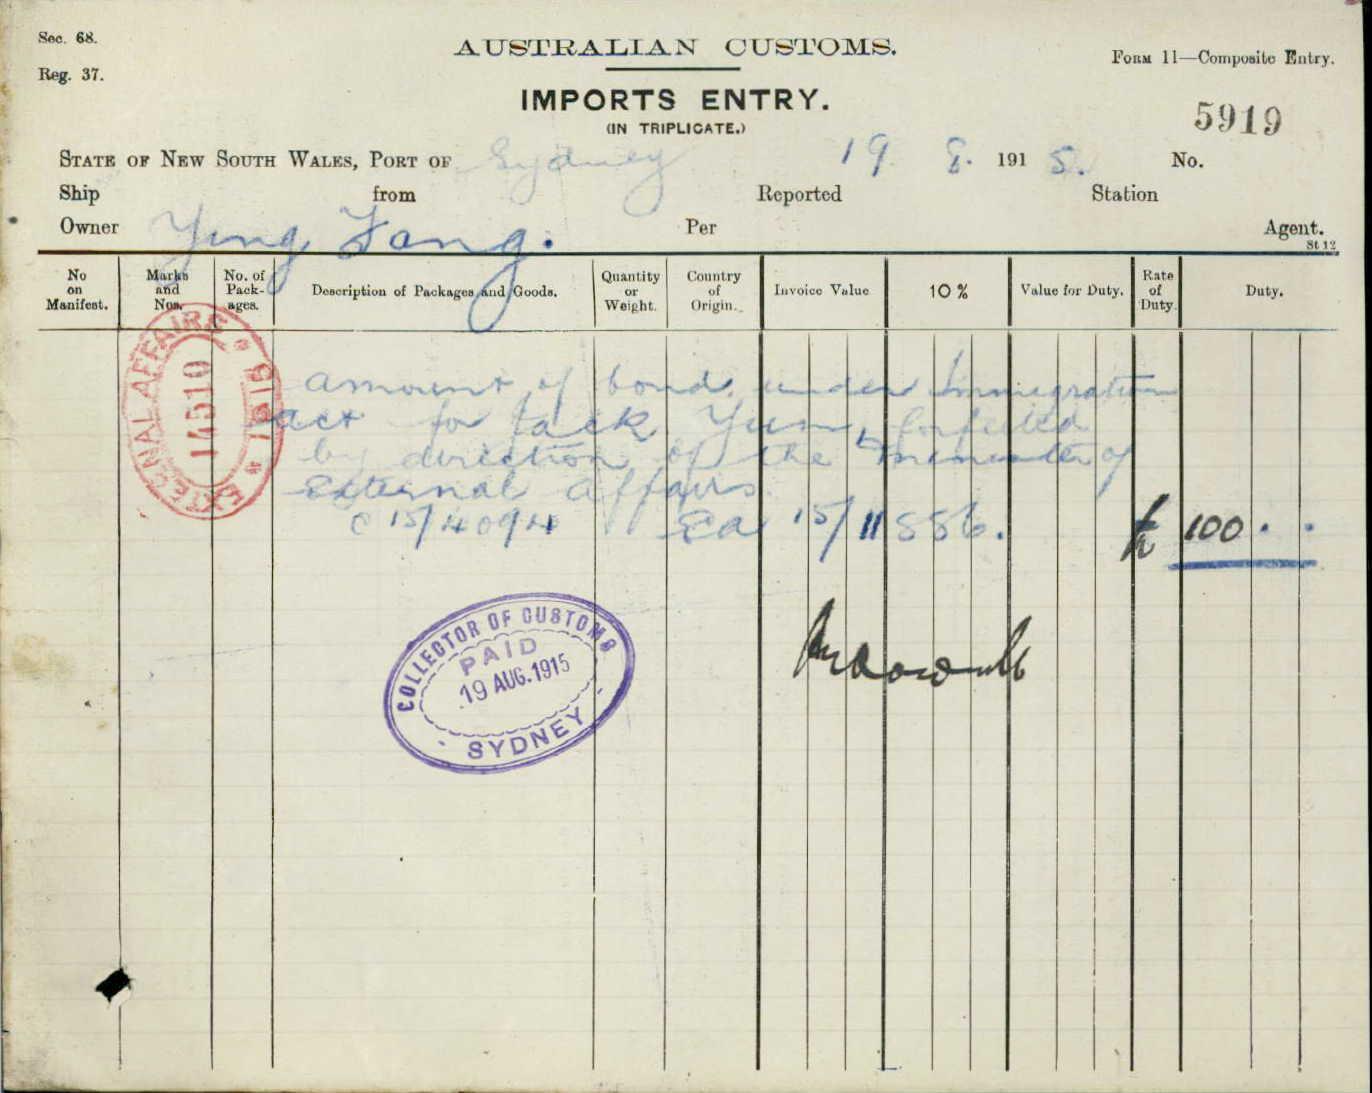 Sec. 68.
Reg. 37.
AUSTRALIAN CUSTOMS.
Form 11—Composite Entry.
IMPORTS ENTRY.
(IN TRIPLICATE.)
5919
State of New South Wales, Port of Sydney 19 8. 1915. No.
Ship from Reported Station
Owner Ying Fang. Per Agent.
St 12
No on Manifest. Marks and Nos. No. of Pack-ages. Description of Packages and Goods. Quantity or Weight. Country of Origin. Invoice Value 10 % Value for Duty. Rate of Duty. Duty.
EXTERNAL AFFAIRS * 1915 *
14510
amount of bond under Immigration
act for Jack Yuen, forfeited
by direction of the Minister of
External Affairs.
C 15/4094 Ea 15/11886. £ 100 . .
COLLECTOR OF CUSTOMS
PAID
19 AUG. 1915
SYDNEY